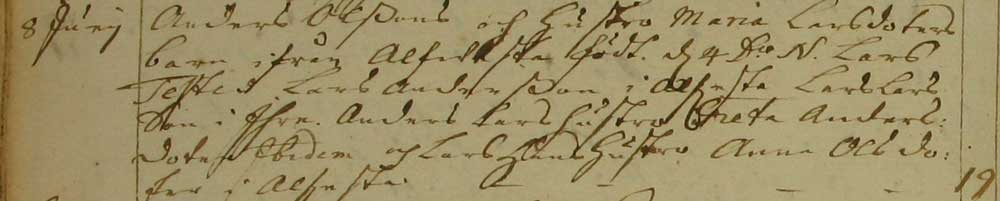 8 Junij Anders Olssons och Hustro Maria Larsdoters
barn ifrån födt. d 4 Do N. Lars
Testes Lars Andersson i Lars Lars
Son i Anders Lars Hustro Greta Anders:
doter Ibidem och Lars Hans Hustro Anna Ols do:
ter i 19